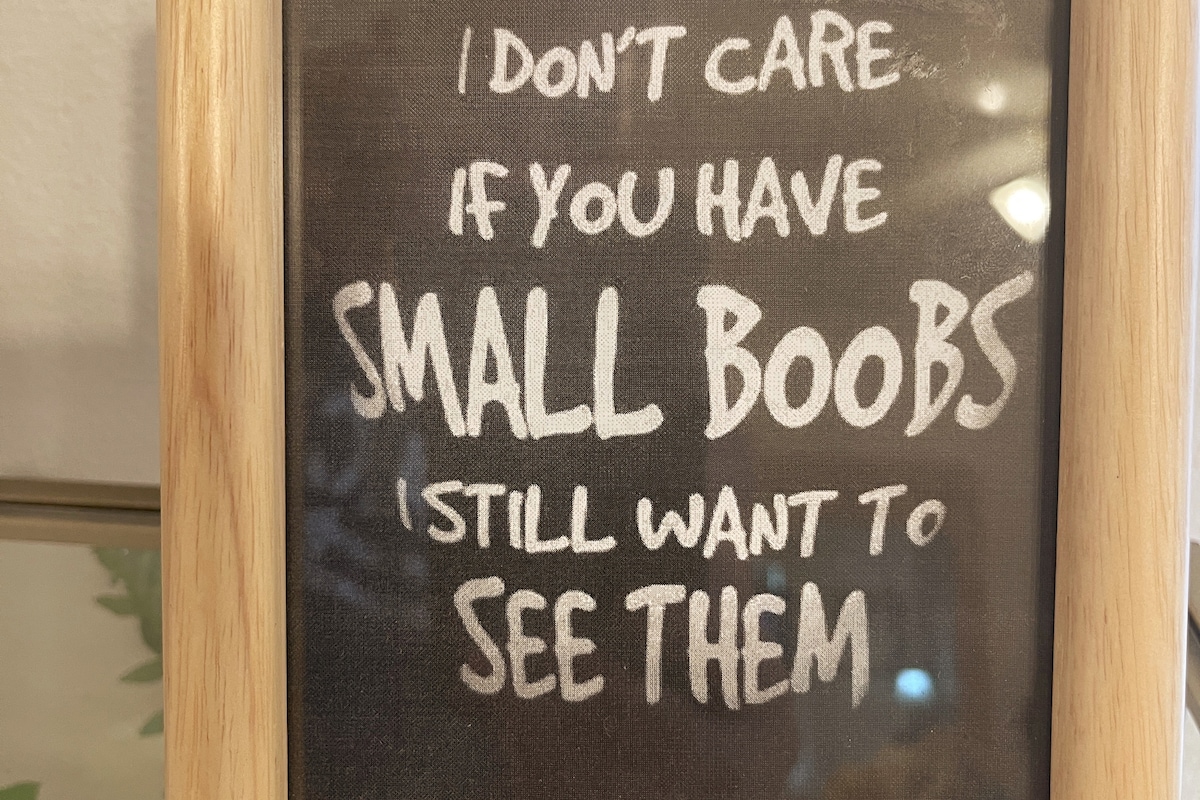 I DON'T CARE
IF YOU HAVE
SMALL BOOBS
I STILL WANT TO
SEE THEM